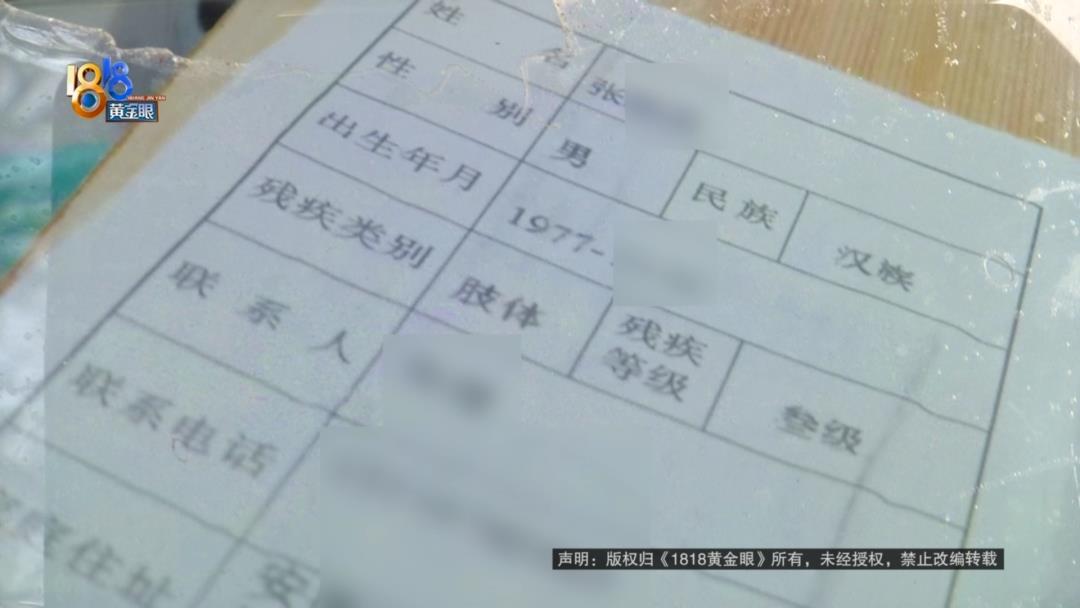 1818
HUANG JIN YAN
黄金眼
姓 名 张
性 别 男 民族 汉族
出生年月 1977-
残疾类别 肢体 残疾等级 叁级
联系人
联系电话
住址 安
声明：版权归《1818黄金眼》所有，未经授权，禁止改编转载